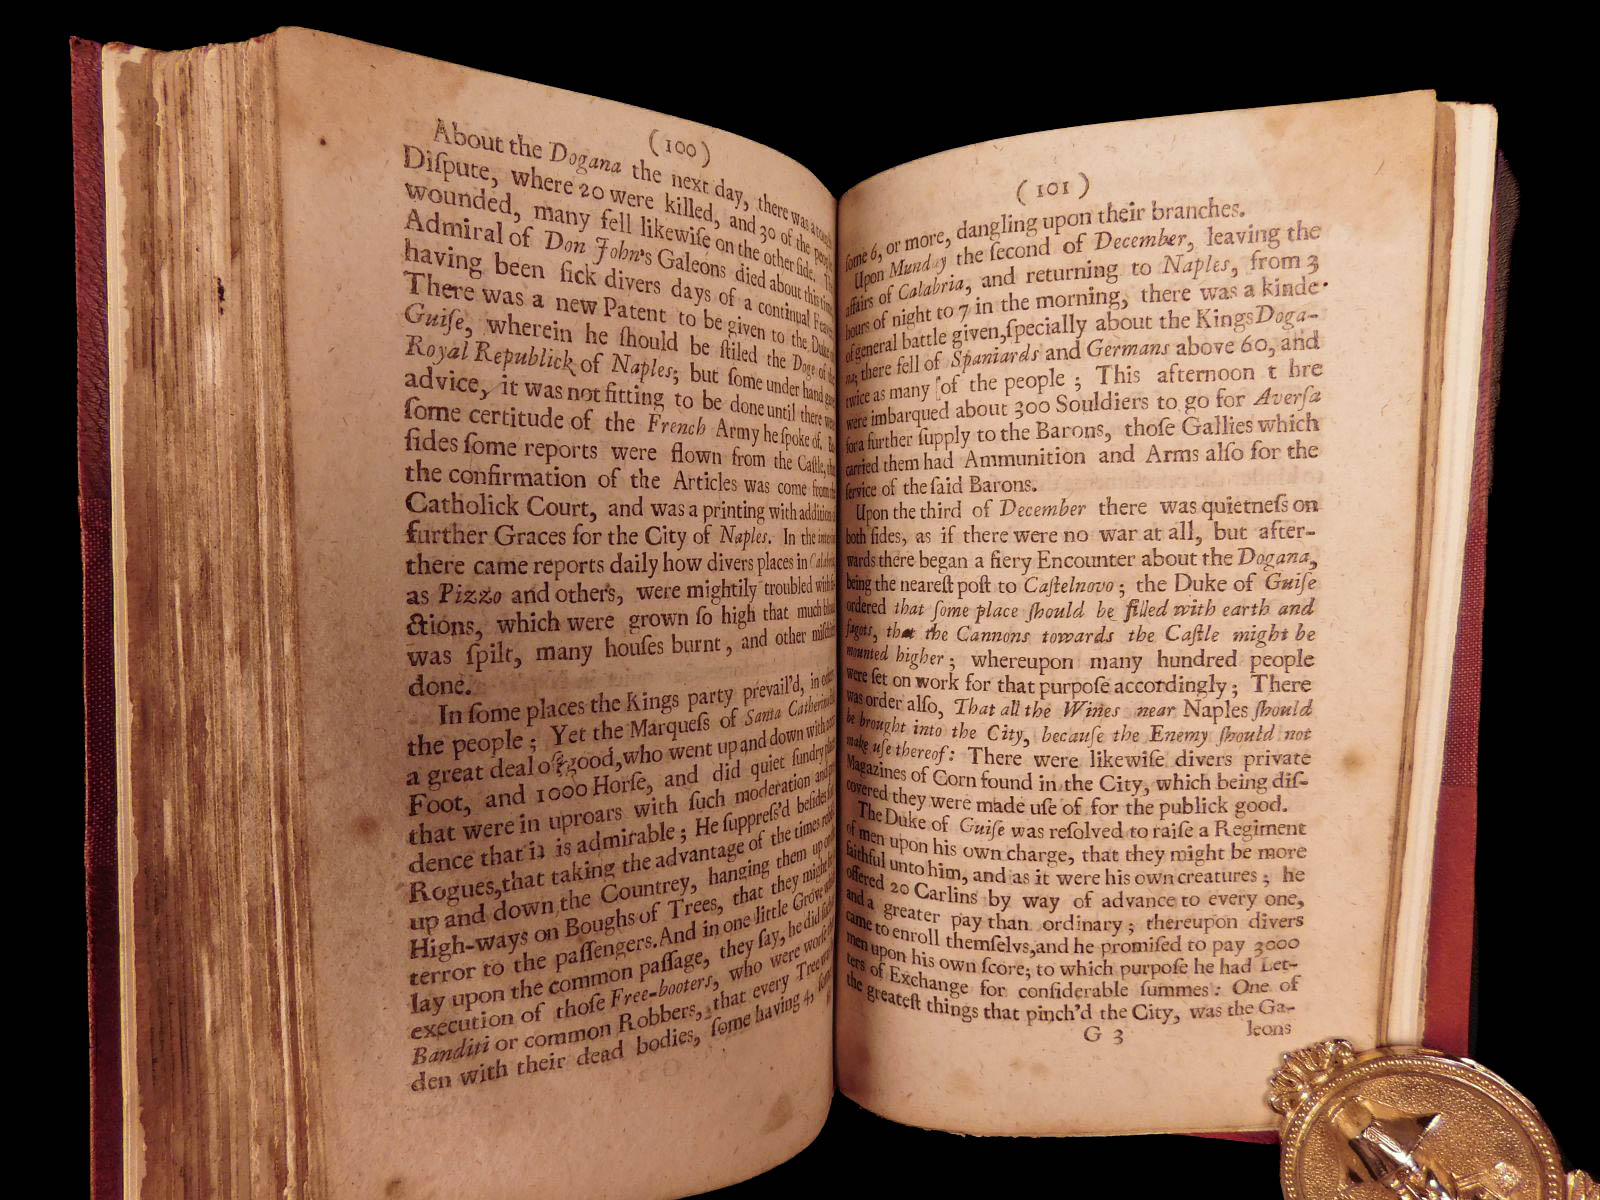 (100)
About the Dogana the next day, there was a
Diſpute, where 20 were killed, and 30 of the people
wounded, many fell likewiſe on the other ſide. The
Admiral of Don John's Galeons died about this time,
having been ſick divers days of a continual Feaver
There was a new Patent to be given to the Duke of
Guiſe, wherein he ſhould be ſtiled the Doge of the
Royal Republick of Naples; but ſome under hand gave
advice, it was not fitting to be done until there were
ſome certitude of the French Army he ſpoke of. Be
ſides ſome reports were flown from the Caſtle, that
the confirmation of the Articles was come from the
Catholick Court, and was a printing with addition of
further Graces for the City of Naples. In the interim
there came reports daily how divers places in Calabria
as Pizzo and others, were mightily troubled with fa-
ctions, which were grown ſo high that much blood
was ſpilt, many houſes burnt, and other miſchiefs
done.
In ſome places the Kings party prevail'd, in others
the people; Yet the Marqueſs of Santa Catherina did
a great deal of good, who went up and down with
Foot, and 1000 Horſe, and did quiet ſundry places
that were in uproars with ſuch moderation and pru
dence that it is admirable; He ſuppreſs'd beſides
Rogues, that taking the advantage of the times
up and down the Countrey, hanging them up on
High-ways on Boughs of Trees, that they might be
terror to the paſſengers. And in one little Grove which
lay upon the common paſſage, they ſay, he did
execution of thoſe Free-booters, who were worſe
Banditi or common Robbers, that every Tree was
den with their dead bodies, ſome having 4, ſome
(101)
ſome 6, or more, dangling upon their branches.
Upon Munday the ſecond of December, leaving the
affairs of Calabria, and returning to Naples, from 3
hours of night to 7 in the morning, there was a kinde
of general battle given, ſpecially about the Kings Doga-
na; there fell of Spaniards and Germans above 60, and
twice as many of the people; This afternoon t hre
were imbarqued about 300 Souldiers to go for Averſa
for a further ſupply to the Barons, thoſe Gallies which
carried them had Ammunition and Arms alſo for the
ſervice of the ſaid Barons.
Upon the third of December there was quietneſs on
both ſides, as if there were no war at all, but after-
wards there began a fiery Encounter about the Dogana,
being the neareſt poſt to Caſtelnovo; the Duke of Guiſe
ordered that ſome place ſhould be filled with earth and
fagots, that the Cannons towards the Caſtle might be
mounted higher; whereupon many hundred people
were ſet on work for that purpoſe accordingly; There
was order alſo, That all the Wines near Naples ſhould
be brought into the City, becauſe the Enemy ſhould not
make uſe thereof: There were likewiſe divers private
Magazines of Corn found in the City, which being diſ-
covered they were made uſe of for the publick good.
The Duke of Guiſe was reſolved to raiſe a Regiment
of men upon his own charge, that they might be more
faithful unto him, and as it were his own creatures; he
offered 20 Carlins by way of advance to every one,
and a greater pay than ordinary; thereupon divers
came to enroll themſelvs, and he promiſed to pay 3000
men upon his own ſcore; to which purpoſe he had Let-
ters of Exchange for conſiderable ſummes: One of
the greateſt things that pinch'd the City, was the Ga-
G 3 leons